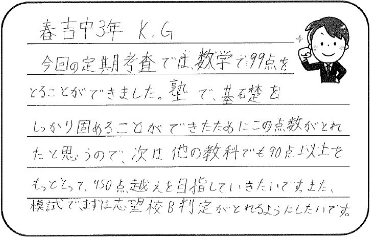 春吉中3年 K.G
今回の定期考査では、数学で99点を
とることができました。塾で、基礎を
しっかり固めることができたためにこの点数がとれ
たと思うので、次は他の教科でも90点以上を
もっととって、450点越えを目指していきたいです。また、
模試でまずは志望校B判定がとれるようにしたいです。